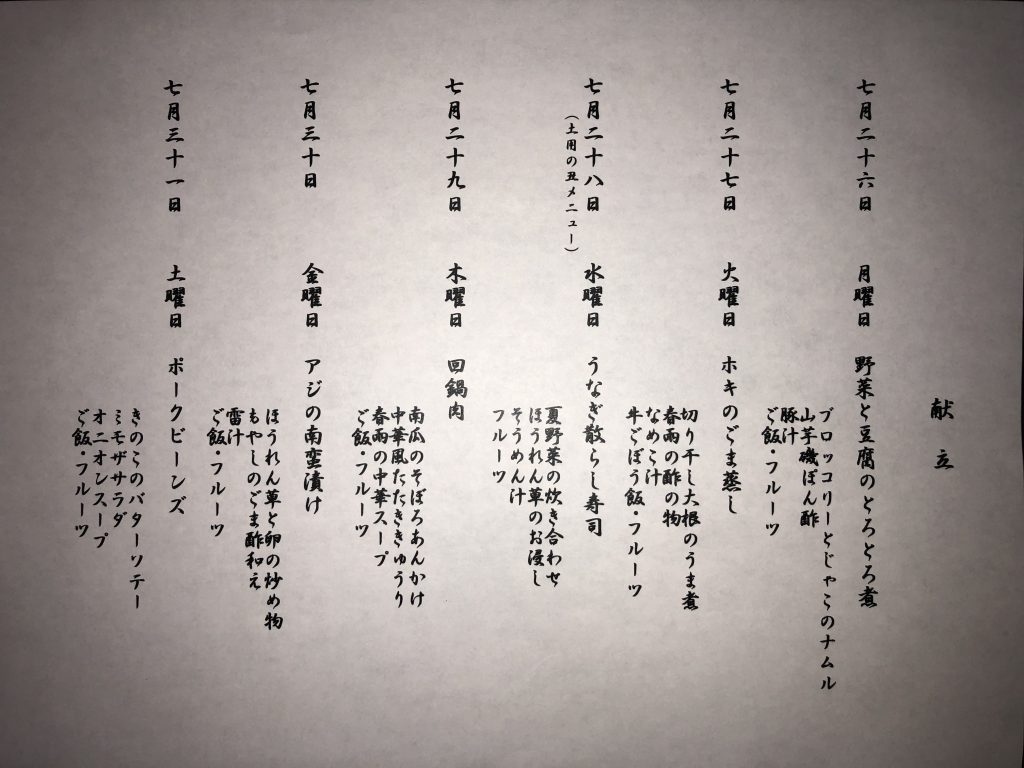 献立
七月二十六日 月曜日 野菜と豆腐のとろとろ煮
ブロッコリーとじゃこのナムル
山芋磯ぽん酢
豚汁
ご飯・フルーツ
七月二十七日 火曜日 ホキのごま蒸し
切り干し大根のうま煮
春雨の酢の物
なめこ汁
牛ごぼう飯・フルーツ
七月二十八日 水曜日 うなぎ散らし寿司
(土用の丑メニュー)
夏野菜の炊き合わせ
ほうれん草のお浸し
そうめん汁
フルーツ
七月二十九日 木曜日 回鍋肉
南瓜のそぼろあんかけ
中華風たたききゅうり
春雨の中華スープ
ご飯・フルーツ
七月三十日 金曜日 アジの南蛮漬け
ほうれん草と卵の炒め物
もやしのごま酢和え
雷汁
ご飯・フルーツ
七月三十一日 土曜日 ポークビーンズ
きのこのバターソテー
ミモザサラダ
オニオンスープ
ご飯・フルーツ